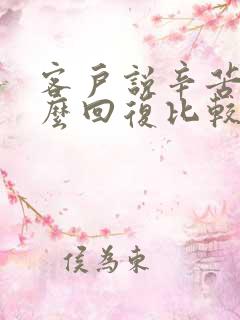 客戶說辛苦
麼回復比較
侯為東